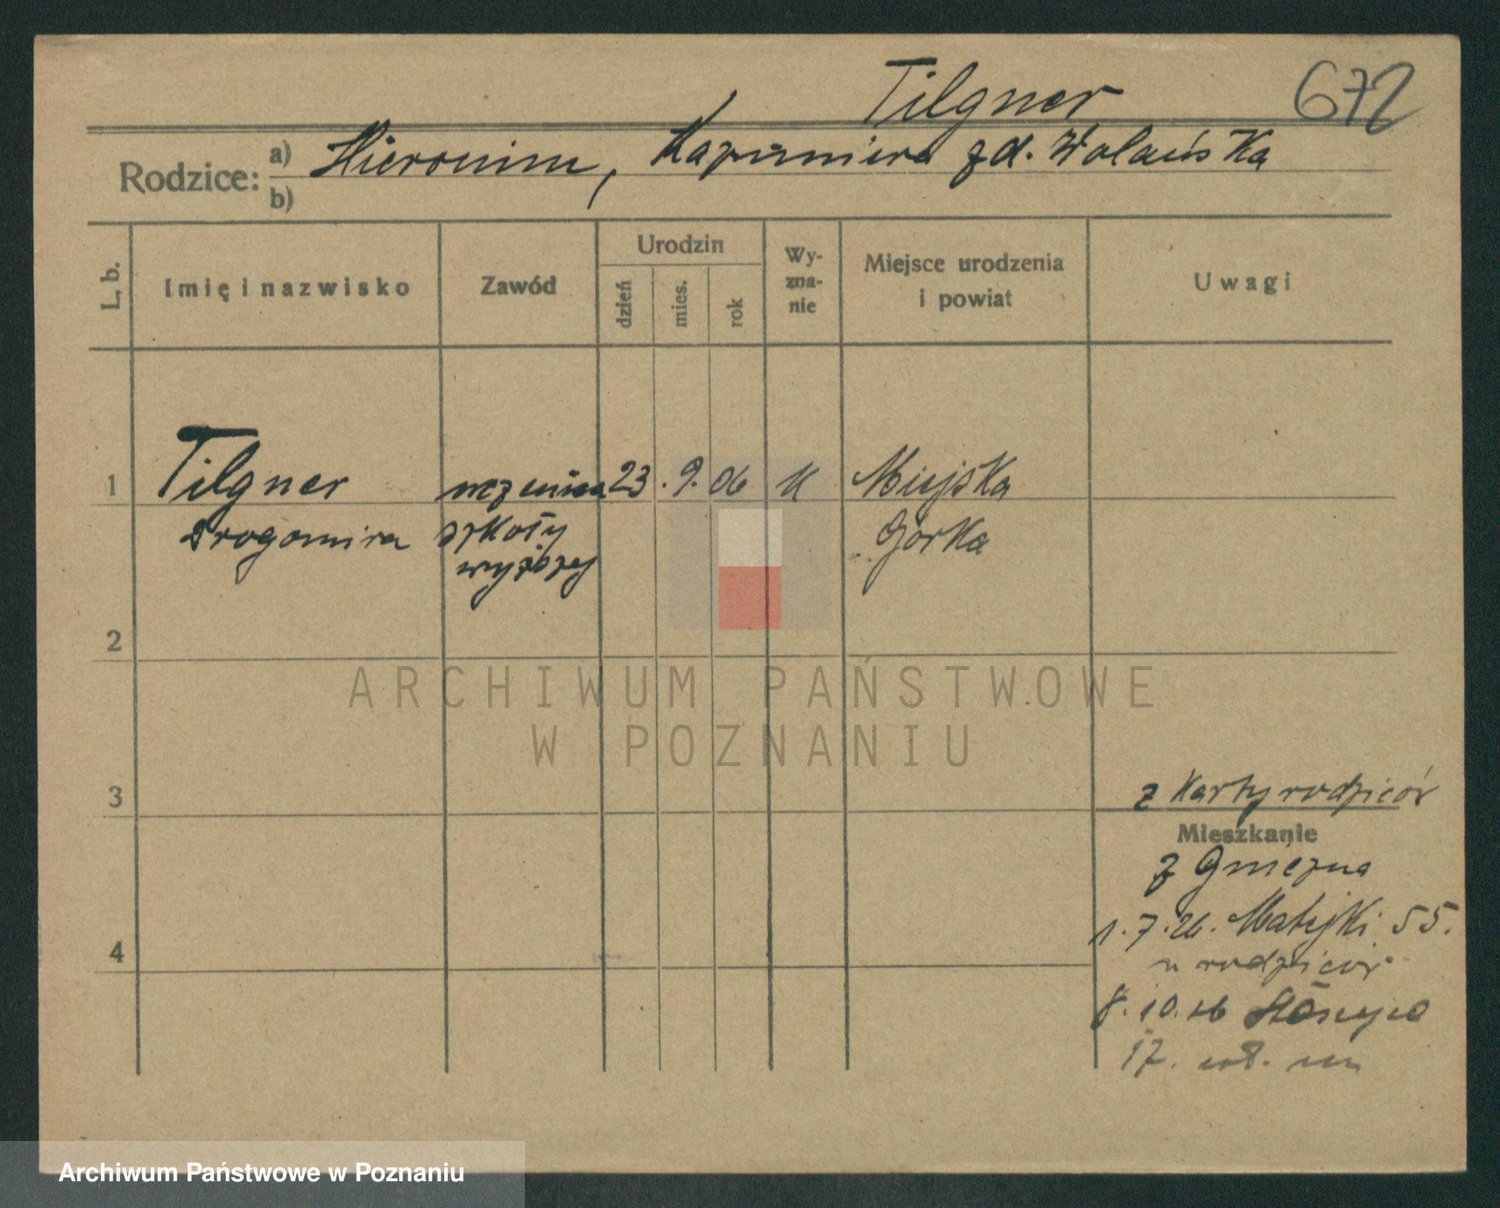 Tilgner 672
Rodzice: a) Hieronim, Kazimiera zd. Wolańska
b)
L. b.
Imię i nazwisko
Zawód
Urodzin
dzień
mies.
rok
Wy-
zna-
nie
Miejsce urodzenia
i powiat
Uwagi
1 Tilgner uczenica 23. 9. 06 k Miejska
Drogomira szkoły Górka
wyższej
2
ARCHIWUM PAŃSTWOWE
W POZNANIU
3
z karty rodziców
Mieszkanie
z Gniezna
1.7.26. Matejki 55.
4
u rodziców
8.10.26
17.
Archiwum Państwowe w Poznaniu